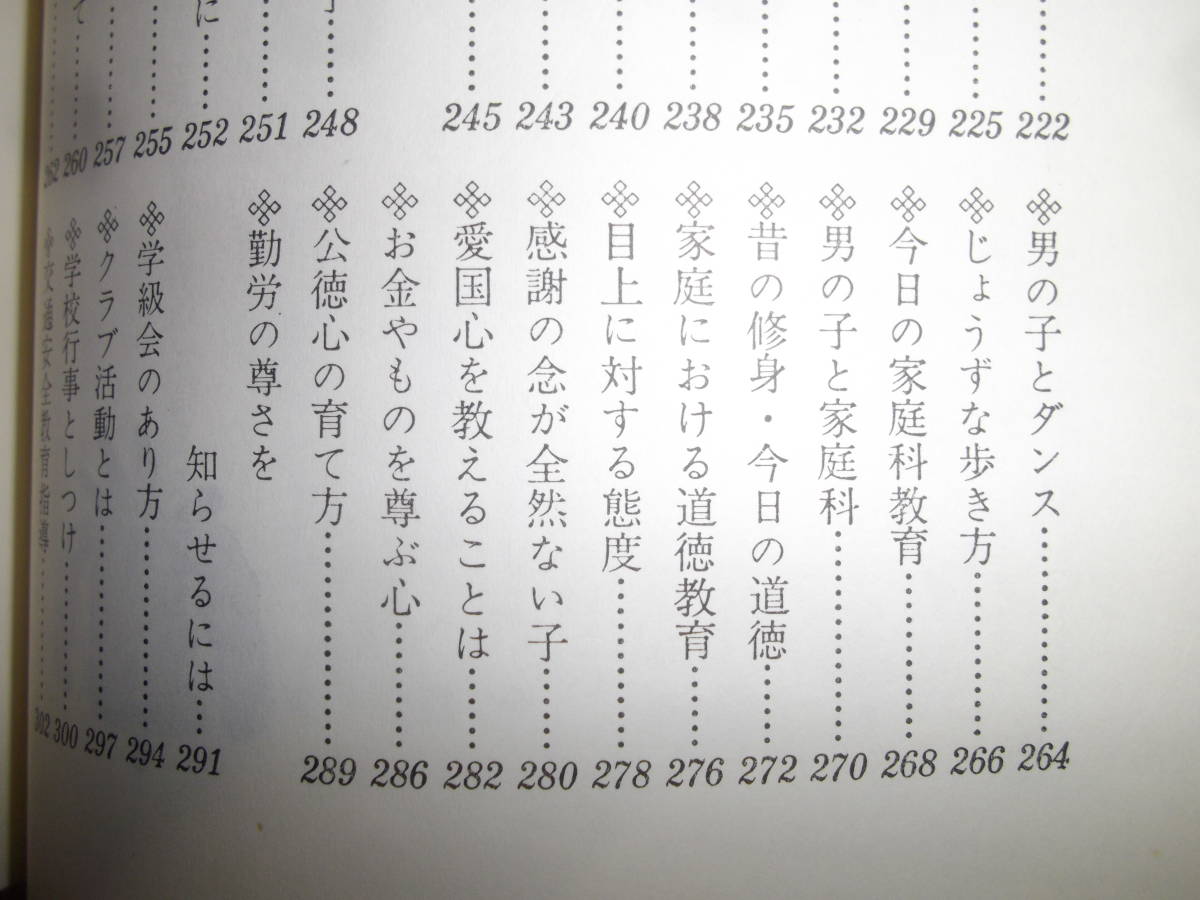 222
225
229
232
235
238
240
243
245
248
251
に……252
255
257
て……260
262
男の子とダンス……264
じょうずな歩き方……266
今日の家庭科教育……268
男の子と家庭科……270
昔の修身・今日の道徳……272
家庭における道徳教育……276
目上に対する態度……278
感謝の念が全然ない子……280
愛国心を教えることは……282
お金やものを尊ぶ心……286
公徳心の育て方……289
勤労の尊さを
知らせるには……291
学級会のあり方……294
クラブ活動とは……297
学校行事としつけ……300
交通安全教育指導……302